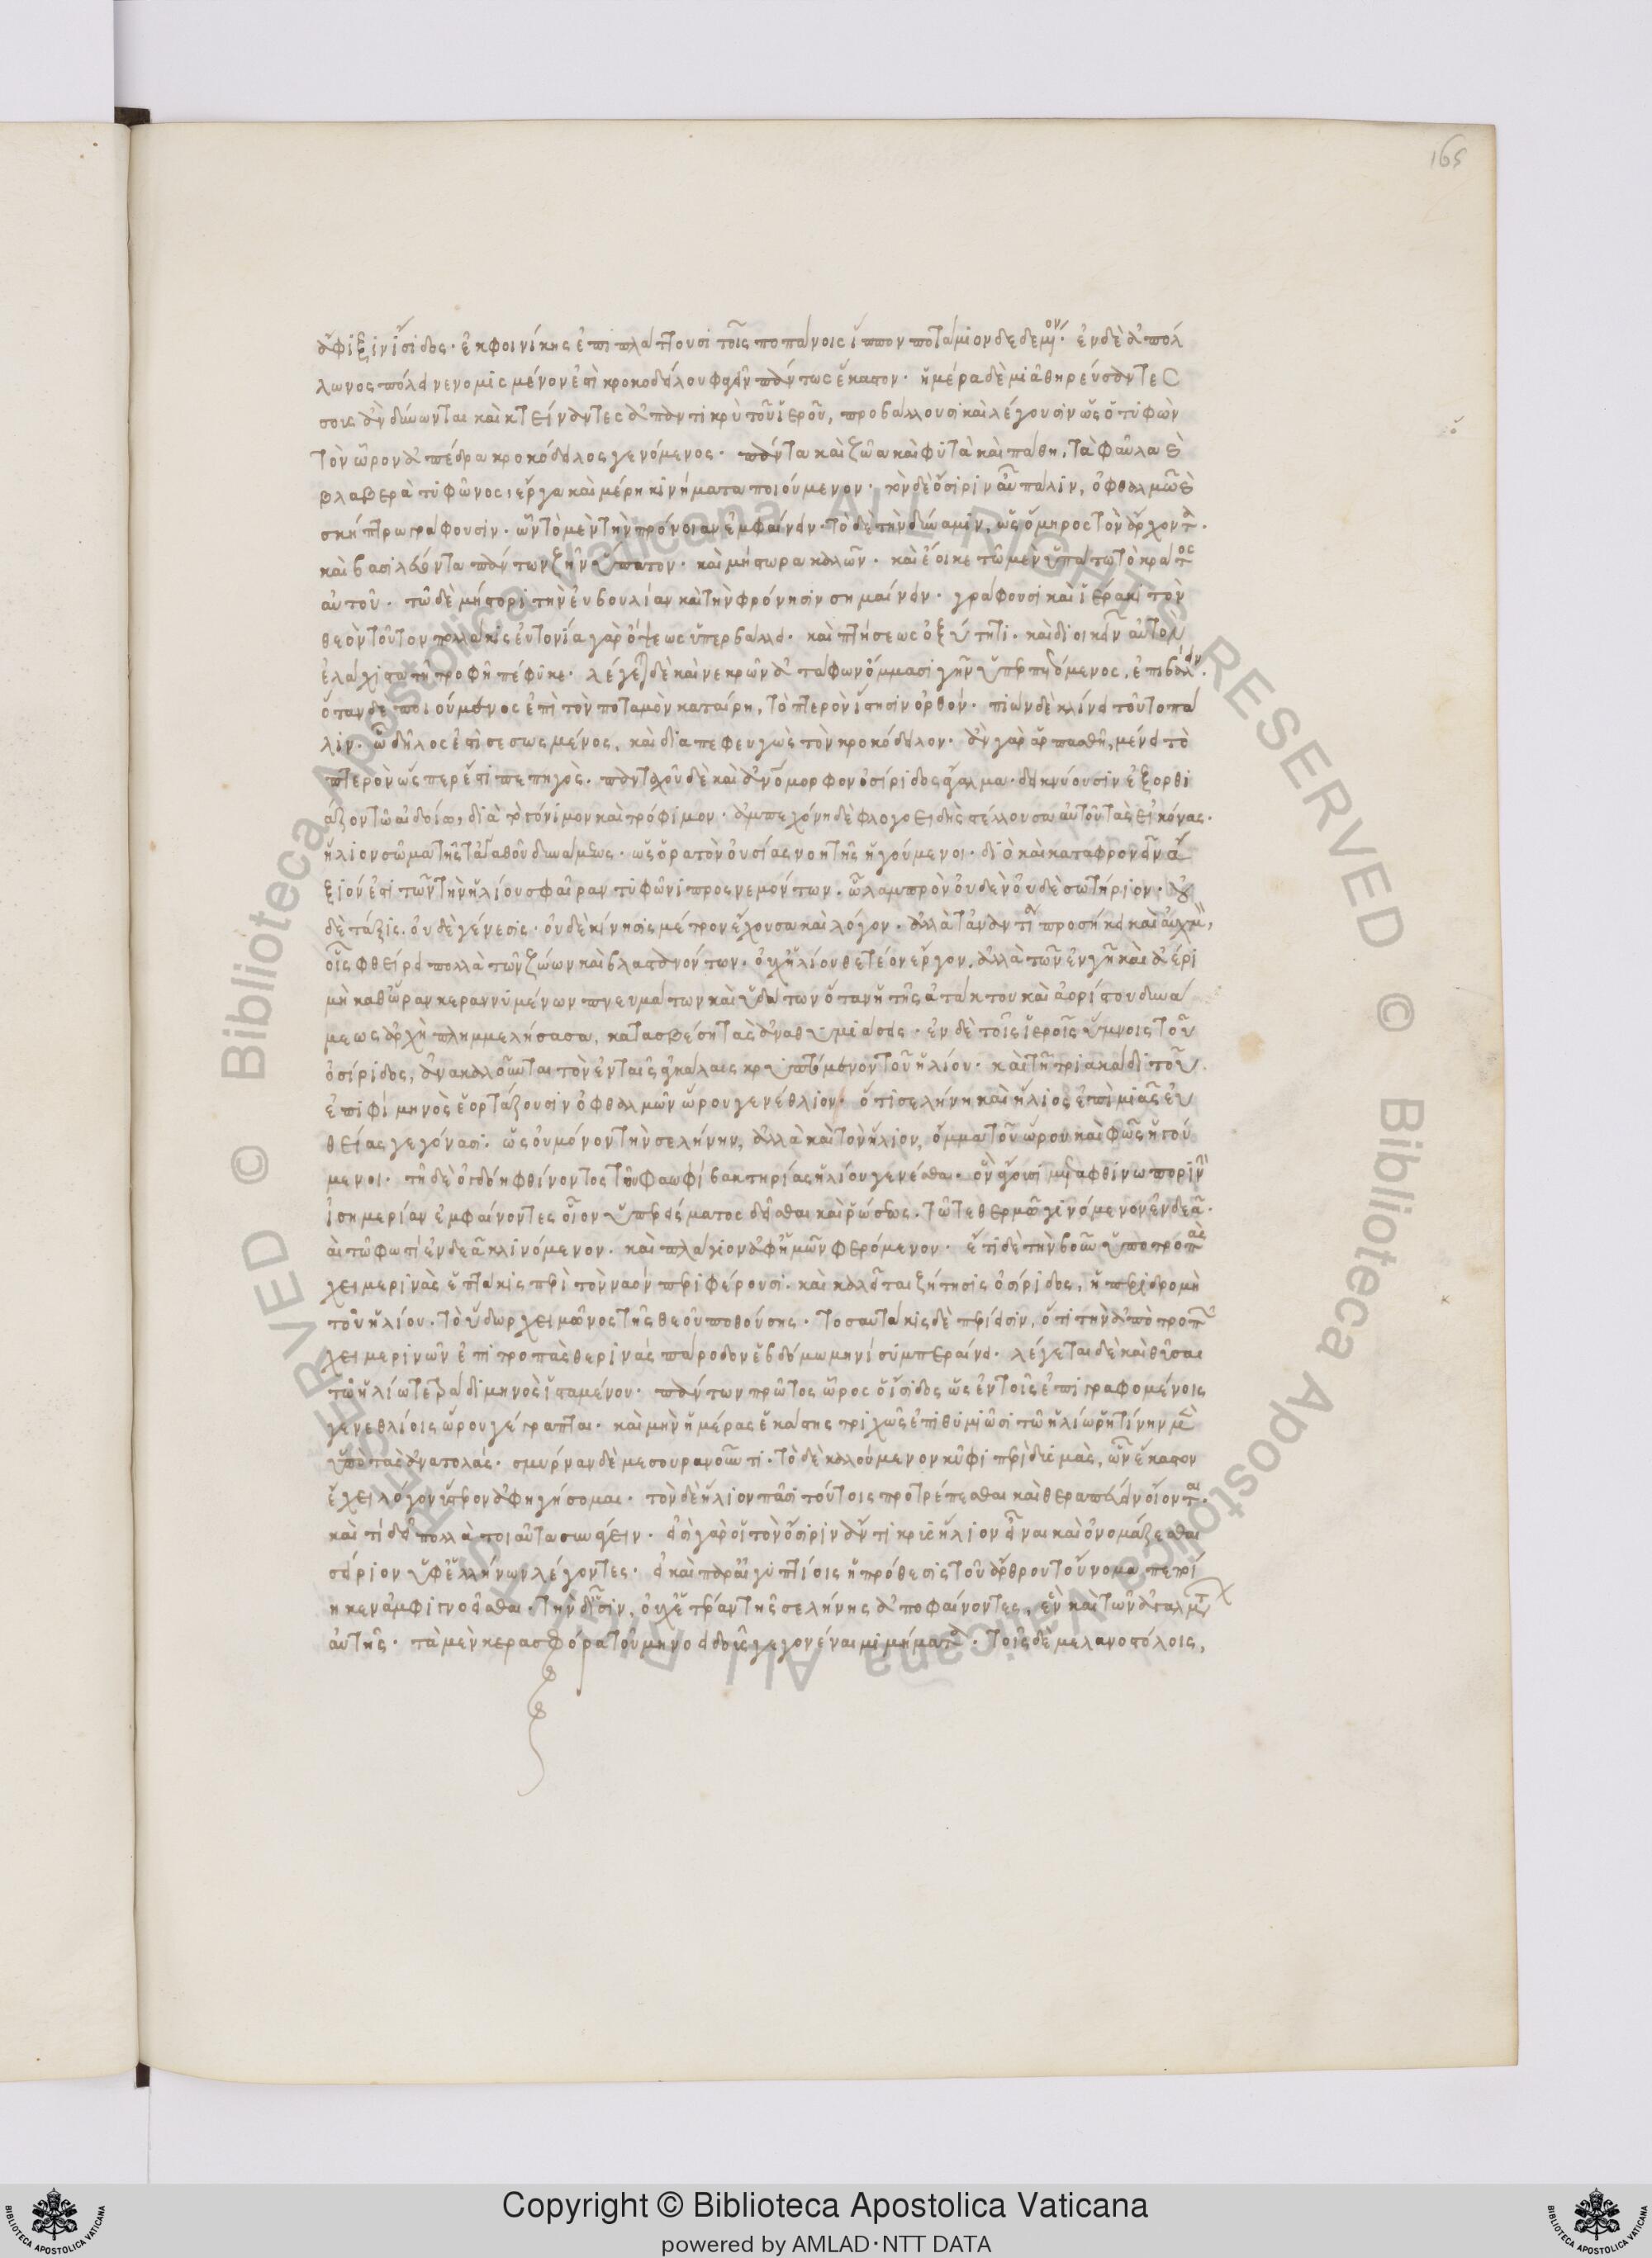 165
ἄφιξιν ἴσιδος· ἐκ φοινίκης ἐπιπλάττουσι τοῖς ποπάνοις ἵππον ποτάμιον δεδεμένον· ἐν δὲ ἀπόλ
λωνος πόλει νενομισμένον ἐστὶ κροκοδείλου φαγεῖν πάντως ἕκαστον· ἡμέρα δὲ μιᾷ θηρεύσαντες
ὅσους ἂν δύνωνται καὶ κτείναντες ἀπαντικρὺ τοῦ ἱεροῦ, προβάλλουσι καὶ λέγουσιν ὡς ὁ τυφὼν
τὸν ὧρον ἀπέδρα κροκόδειλος γενόμενος· πάντα καὶ ζῶα καὶ φυτὰ καὶ πάθη, τὰ φαῦλα καὶ
βλαβερὰ τυφῶνος, ἔργα καὶ μέρη κινήματα ποιούμενον· τὸν δὲ ὄσιριν αὖ πάλιν, ὀφθαλμῶ καὶ
σκήπτρω γράφουσιν· ὧν τὸ μὲν τὴν πρόνοιαν ἐμφαίνειν· τὸ δὲ τὴν δύναμιν, ὡς ὅμηρος τὸν ἄρχοντα·
καὶ βασιλεύοντα πάντων ζῆν ὕπατον· καὶ μήστωρα καλῶν· καὶ ἔοικε τῶ μὲν ὑπάτω τὸ κράτος
αὐτοῦ· τῶ δὲ μήστορι τὴν εὐβουλίαν καὶ τὴν φρόνησιν σημαίνειν· γράφουσι καὶ ἱέρακι τὸν
θεὸν τοῦτον πολλάκις εὐτονία γὰρ ὄψεως ὑπερβάλλει· καὶ πτήσεως ὀξύτητι· καὶ διοικεῖν αὑτὸν
ἐλάχιστα τῇ τροφῇ πέφυκε· λέγεται δὲ καὶ νεκρῶν ἀτάφων ὄμμασι γῆν ὑπερπετόμενος, ἐπιβάλλειν·
ὅταν δὲ πιούμενος ἐπὶ τὸν ποταμὸν καταίρῃ, τὸ πτερὸν ἵστησιν ὀρθόν· πιὼν δὲ κλίνει τοῦτο πά
λιν· ᾧ δῆλός ἐστι σεσωσμένος, καὶ διαπεφευγὼς τὸν κροκόδειλον· ἂν γὰρ ἁρπασθῇ, μένει τὸ
πτερὸν ὥσπερ ἔστι πεπηγός· πανταχοῦ δὲ καὶ ἀνθρωπόμορφον ὀσίριδος ἄγαλμα δεικνύουσιν ἐξορθι
άζον τῶ αἰδοίω, διὰ τὸ γόνιμον καὶ τρόφιμον· ἀμπεχόνη δὲ φλογοειδὴς στέλλουσα αὐτοῦ τὰς εἰκόνας·
ἥλιον σῶμα τῆς τἀγαθοῦ δυνάμεως· ὡς ὁρατὸν οὐσίας νοητῆς ἡγούμενοι· διὸ καὶ καταφρονεῖν ἄ
ξιόν ἐστι τῶν τὴν ἡλίου σφαῖραν τυφῶνι προσνεμόντων· ᾧ λαμπρὸν οὐδὲν οὐδὲ σωτήριον· οὐ
δὲ τάξις· οὐδὲ γένεσις· οὐδὲ κίνησις μέτρον ἔχουσα καὶ λόγον· ἀλλὰ τἀναντία προσήκει καὶ αὐχμὸν,
οἷς φθείρει πολλὰ τῶν ζώων καὶ βλαστανόντων· οὐχ ἡλίου θετέον ἔργον· ἀλλὰ τῶν ἐν γῇ καὶ ἀέρι
μὴ καθ' ὥραν κεραννυμένων πνευμάτων καὶ ὑδάτων ὅταν ἡ τῆς ἀτάκτου καὶ ἀορίστου δυνά
μεως ἀρχὴ πλημμελήσασα, κατασβέσῃ τὰς ἀναθυμιάσεις· ἐν δὲ τοῖς ἱεροῖς ὕμνοις τοῦ
ὀσίριδος, ἀνακαλοῦνται τὸν ἐν ταῖς ἀγκάλαις κρυπτόμενον τοῦ ἡλίου· καὶ τῇ τριακάδι τοῦ
ἐπιφὶ μηνὸς ἑορτάζουσιν ὀφθαλμῶν ὥρου γενέθλιον· ὅτι σελήνη καὶ ἥλιος ἐπὶ μιᾶς εὐ
θείας γεγόνασι· ὡς οὐ μόνον τὴν σελήνην, ἀλλὰ καὶ τὸν ἥλιον, ὄμμα τοῦ ὥρου καὶ φῶς ἡγού
μενοι· τῇ δὲ ὀγδόῃ φθίνοντος τοῦ φαωφὶ βακτηρίας ἡλίου γενέσθαι·
ἰσημερίαν ἐμφαίνοντες οἷον ὑπερείσματος δεῖσθαι καὶ ῥώσεως· τῶ τε θερμῶ γινόμενον ἐνδεᾶ·
καὶ τῶ φωτὶ ἐνδεᾶ κλινόμενον· καὶ πλάγιον ἀφ' ἡμῶν φερόμενον· ἔτι δὲ τὴν βοῦν ὑπὸ τροπὰς
χειμερινὰς ἑπτάκις περὶ τὸν ναὸν περιφέρουσι· καὶ καλεῖται ζήτησις ὀσίριδος, ἡ περιδρομὴ
τοῦ ἡλίου· τὸ ὕδωρ χειμῶνος τῆς θεοῦ ποθούσης· τοσαυτάκις δὲ περίεισιν, ὅτι τὴν ἀπὸ τροπῶν
χειμερινῶν ἐπὶ τροπὰς θερινὰς πάροδον ἑβδόμω μηνὶ συμπεραίνει· λέγεται δὲ καὶ θῦσαι
τῶ ἡλίω τετράδι μηνὸς ἱσταμένου· πάντων πρῶτος ὧρος ὁ ἴσιδος ὡς ἐν τοῖς ἐπιγραφομένοις
γενεθλίοις ὥρου γέγραπται· καὶ μὴν ἡμέρας ἑκάστης τριχῶς ἐπιθυμιῶσι τῶ ἡλίω ῥητίνην μὲν
ὑπὸ τὰς ἀνατολάς· σμύρναν δὲ μεσουρανοῦντι· τὸ δὲ καλούμενον κῦφι περὶ δυσμὰς, ὧν ἕκαστον
ἔχει λόγον ὕστερον ἀφηγήσομαι· τὸν δὲ ἥλιον πᾶσι τούτοις προτρέπεσθαι καὶ θεραπεύειν οἴονται·
καὶ τί δεῖ πολλὰ τοιαῦτα συνάγειν· εἰσὶ γὰρ οἳ τὸν ὄσιριν ἄντικρυς ἥλιον εἶναι καὶ ὀνομάζεσθαι
σείριον ὑφ' ἑλλήνων λέγοντες· εἰ καὶ παρ' αἰγυπτίοις ἡ πρόθεσις τοῦ ἄρθρου τοὔνομα πεποί
ηκεν ἀμφιγνοεῖσθαι· τὴν δὲ ἶσιν, οὐχ ἑτέραν τῆς σελήνης ἀποφαίνοντες, ἓν καὶ τῶν ἀγαλμάτων
αὐτῆς· τὰ μὲν κερασφόρα τοῦ μηνοειδοῦς γεγονέναι μιμήματα· τοῖς δὲ μελανοστόλοις,
Copyright © Biblioteca Apostolica Vaticana
powered by AMLAD·NTT DATA